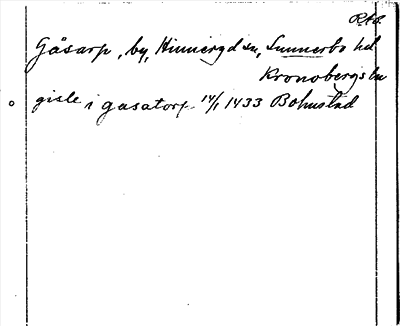 RAp.
Gåsarp, by, Hinneryd sn, Sunnerbo hd
Kronobergs län
gisle i gasatorp 14/1 1433 Bohustad